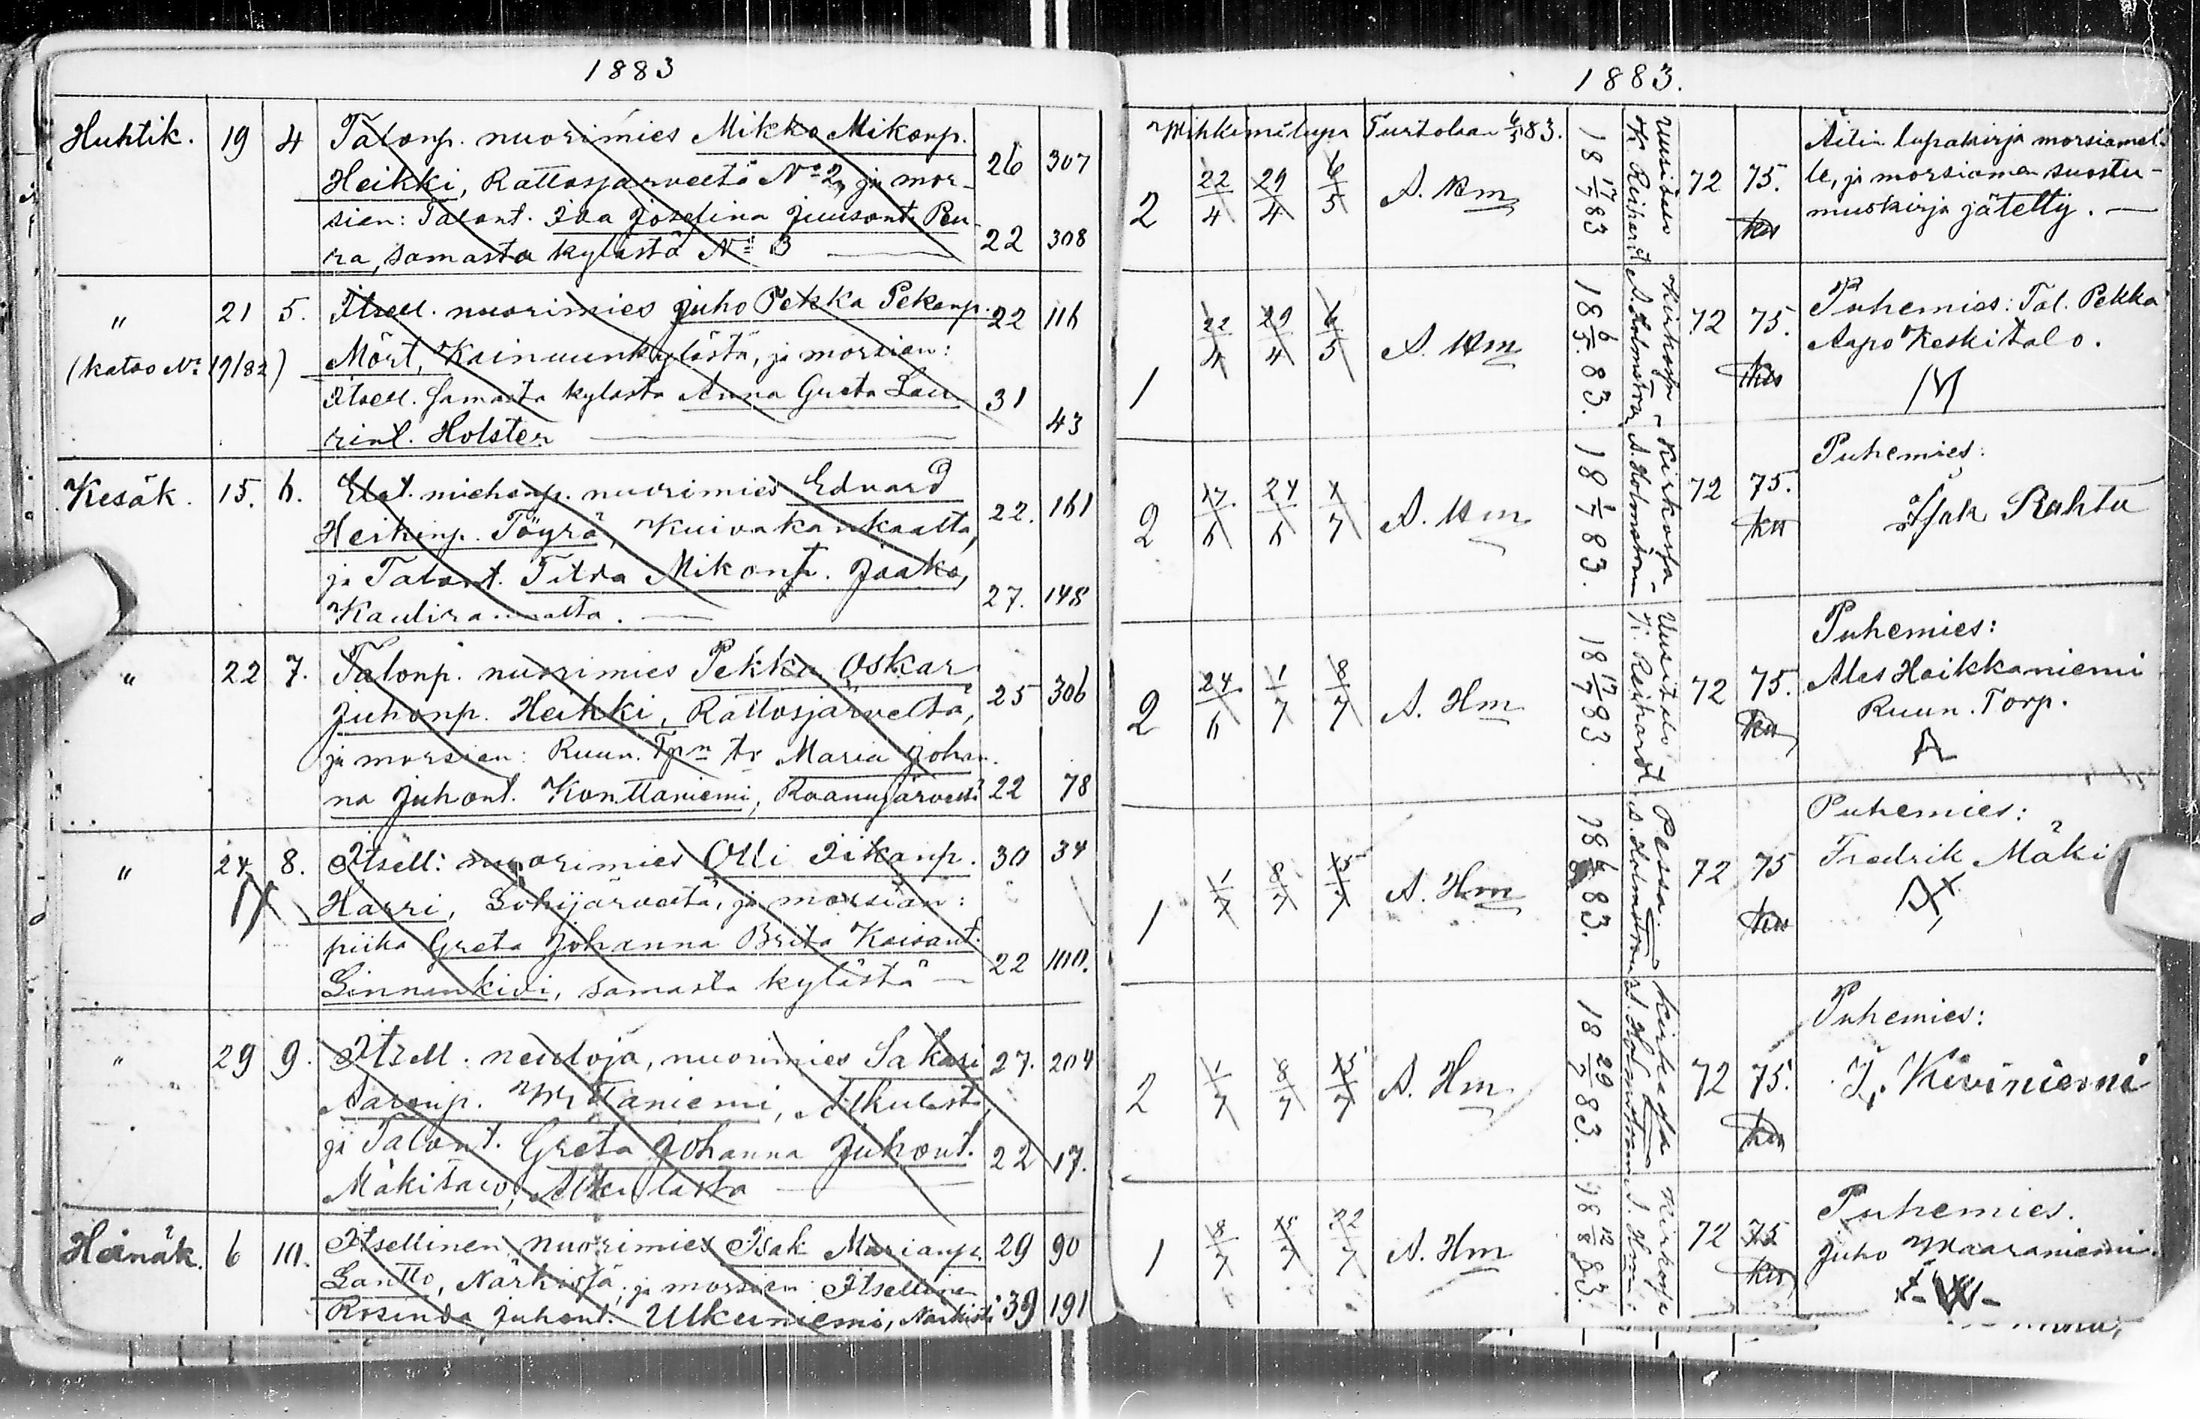 1883
Huhtik. 19 4 Talonp. nuorimies Mikko Mikonp. 26 307
Heikki, Rattosjärveltä No 2, ja mor-
sian: Talont. Ida Josefina Juusont. Peu 22 308
ra, samasta kylästä No 3
" 21 5. Itsell. nuorimies Juho Pekka Pekanp. 22 116
(katso No 19/82) Mört, Kainuunkylästä, ja morsian:
Itsell. samasta kylästä Anna Greta Lau 31 43
rint. Holster
Kesäk. 15. 6. Elat. miehenp. nuorimies Eduard 22. 161
Heikinp. Töyrä, Kuivakankaalta,
ja Talont. Tilda Mikont. Jaako, 27. 148
Kaulirannalta.
" 22 7. Talonp. nuorimies Pekka Oskar 25 306
Juhonp. Heikki, Rattosjärveltä,
ja morsian: Ruun. Tpn tr Maria Johan-
na Juhont. Konttaniemi, Raanujärveltä 22 78
" 24 8. Itsell: nuorimies Olli Iikanp. 30 34
Harri, Lohijärveltä, ja morsian:
piika Greta Johanna Brita
Linnankivi, samasta kylästä 22 100.
" 29 9. Itsell. neuloja, nuorimies Sakari 27. 204
Aaronp. Wittaniemi, Alkulasta,
ja Talont. Greta Johanna Juhont. 22 17.
Mäkitalo, Alkulasta
Heinäk. 6 10. Itsellinen nuorimies Isak Marianp. 29 90
Lantto, Närkistä, ja morsian Itsellinen
Rosinda Juhont. Ulkuniemi, Närkistä 39 191
1883.
Wihkimälupa Turtolaan 6/5 83.
2 22/4 29/4 6/5 A. Hm 18 17/7 83 Uusitalo K. Reihardt 72 75. Äitin lupakirja morsiamel-
le, ja morsiamen suostu-
muskirja jätetty.
1 22/4 29/4 6/5 A. Hm 18 6/5 83. Kirkossa A. Holmström 72 75. Puhemies: Tal. Pekka
Aapo Keskitalo.
2 17/6 24/6 1/7 A. Hm 18 1/7 83. Kirkossa A. Holmström 72 75. Puhemies:
Isak Rahtu
2 24/6 1/7 8/7 A. Hm 18 17/7 83. Uusitalo K. Reihardt 72 75. Puhemies:
Ales Heikkaniemi
Ruun. Torp.
1 1/7 8/7 15/7 A. Hm 83. Pessa A. Holmström 72 75 Puhemies:
Fredrik Mäki
2 1/7 8/7 15/7 A. Hm 18 29/7 83. Kirkossa A. Holmström 72 75. Puhemies:
I. Kiviniemi
1 8/7 15/7 22/7 A. Hm 18 12/8 83. Kirkossa A. Hm: 72 75 Puhemies.
Juho Maaraniemi.